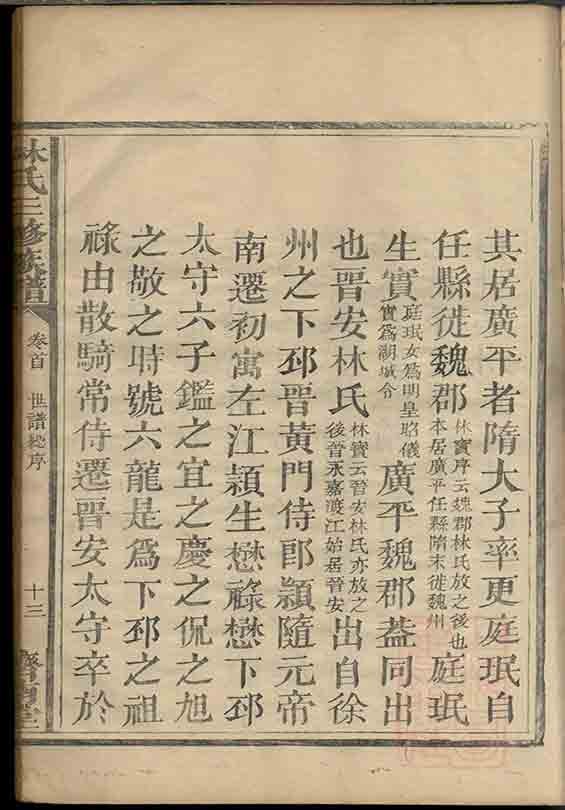 其居廣平者隋大子率更庭珉自
任縣徙魏郡林寶序云魏郡林氏放之後也本居廣平任縣隋末徙魏州庭珉
生實庭珉女爲明皇昭儀實爲湖城令廣平魏郡葢同出
也晋安林氏林寶云晉安林氏亦放之後晉永嘉渡江始居晉安出自徐
州之下邳晋黄門侍郎頴隨元帝
南遷初寓左江頴生懋祿懋下邳
太守六子鑑之宜之慶之侃之旭
之敬之時號六龍是爲下邳之祖
祿由散騎常侍遷晋安太守卒於
林氏三修族譜
卷首 世譜總序
十三